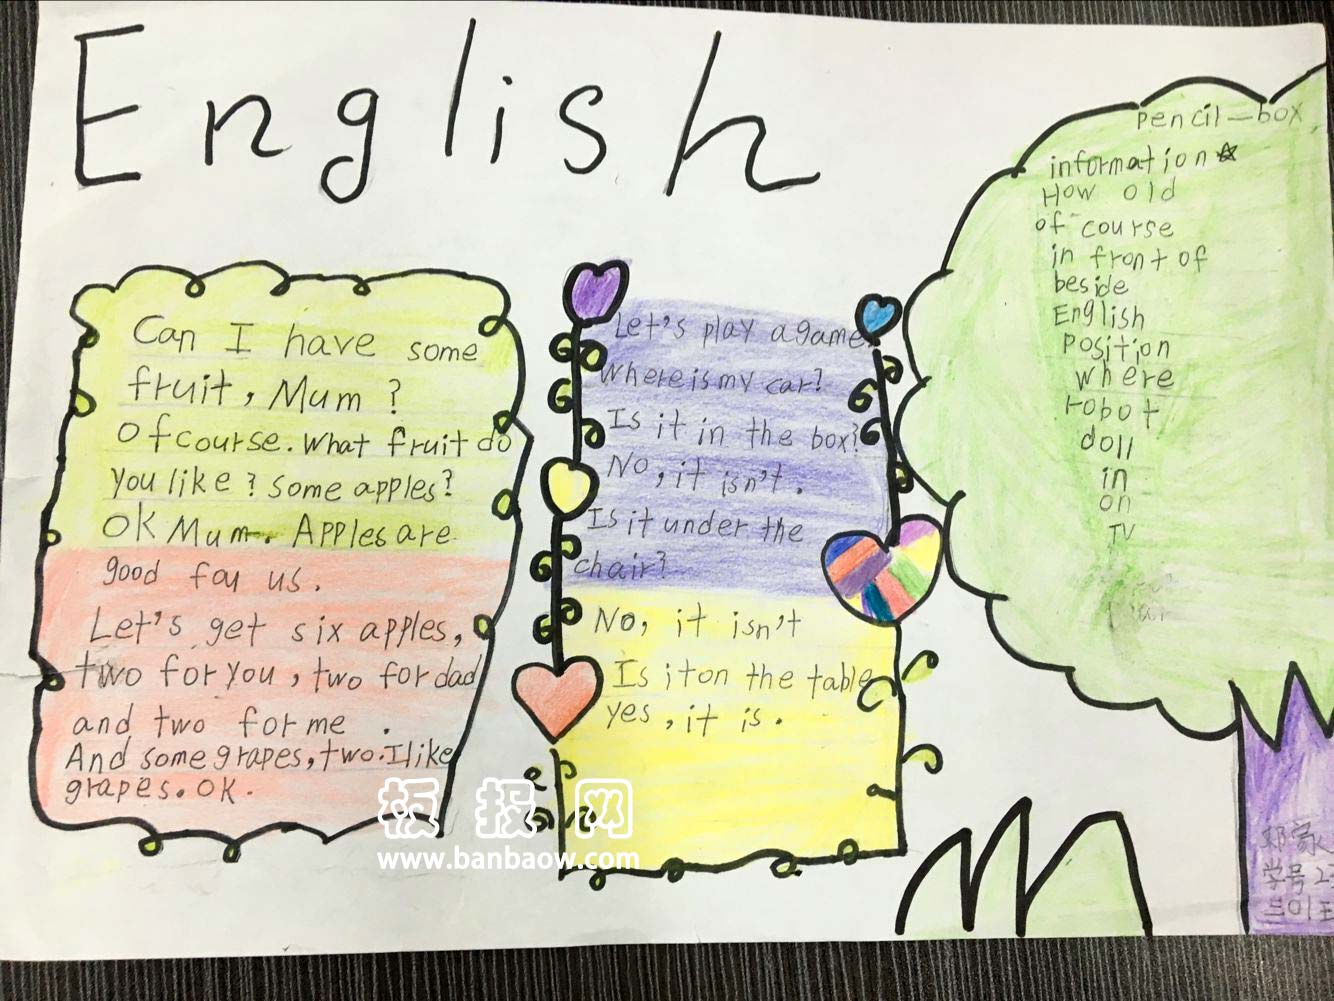 English
Can I have some
fruit, Mum?
Of course. What fruit do
you like? some apples?
OK Mum. Apples are
good fou us.
Let's get six apples,
two for you, two for dad
and two for me.
And some grapes, two. I like
grapes. OK.
Let's play a game
Where is my car?
Is it in the box?
No, it isn't.
Is it under the
chair?
No, it isn't
Is it on the table
yes, it is.
pencil-box
information
How old
of course
in front of
beside
English
position
where
robot
doll
in
on
TV
学号
板报网
www.banbaow.com